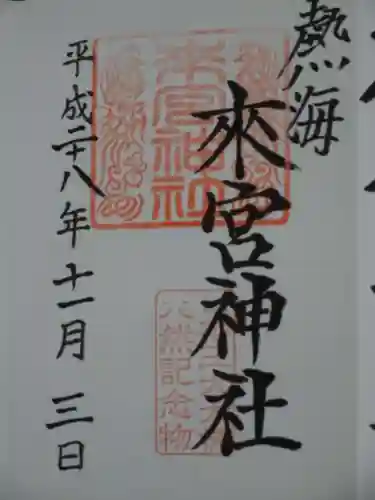 熱海
來宮神社
平成二十八年十一月三日
來宮神社
天然記念物